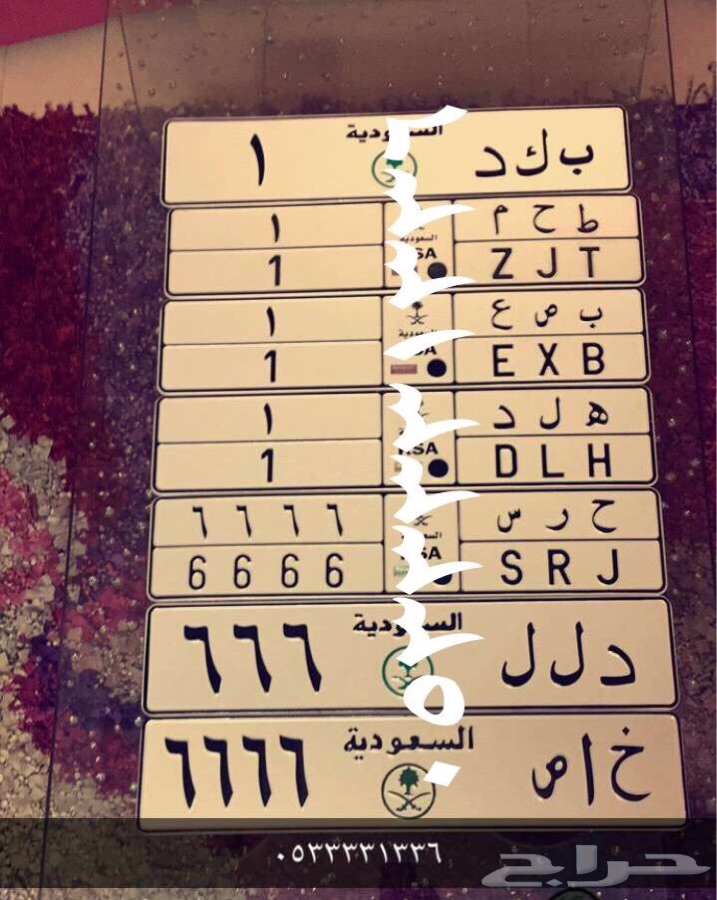 ب ك د السعودية ١
ط ح م السعودية ١
1 KSA Z J T
ب ص ع السعودية ١
1 KSA E X B
ه ل د ١
1 KSA D L H
ح ر س السعودية ٦ ٦ ٦ ٦
6 6 6 6 KSA S R J
د ل ل السعودية ٦٦٦
خ ا ص السعودية ٦٦٦٦
٠٥٣٣٣٣١٣٣٦
٠٥٣٣٣٣١٣٣٦
حراج